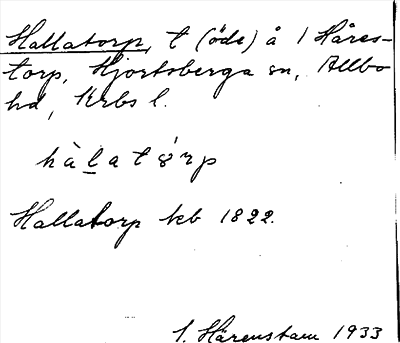 Hallatorp, t (öde) å 1 Håres-
torp, Hjortsberga sn, Allbo
hd, Krbs l.
hàḷatǫ́rp
Hallatorp kb 1822.
S. Härenstam 1933